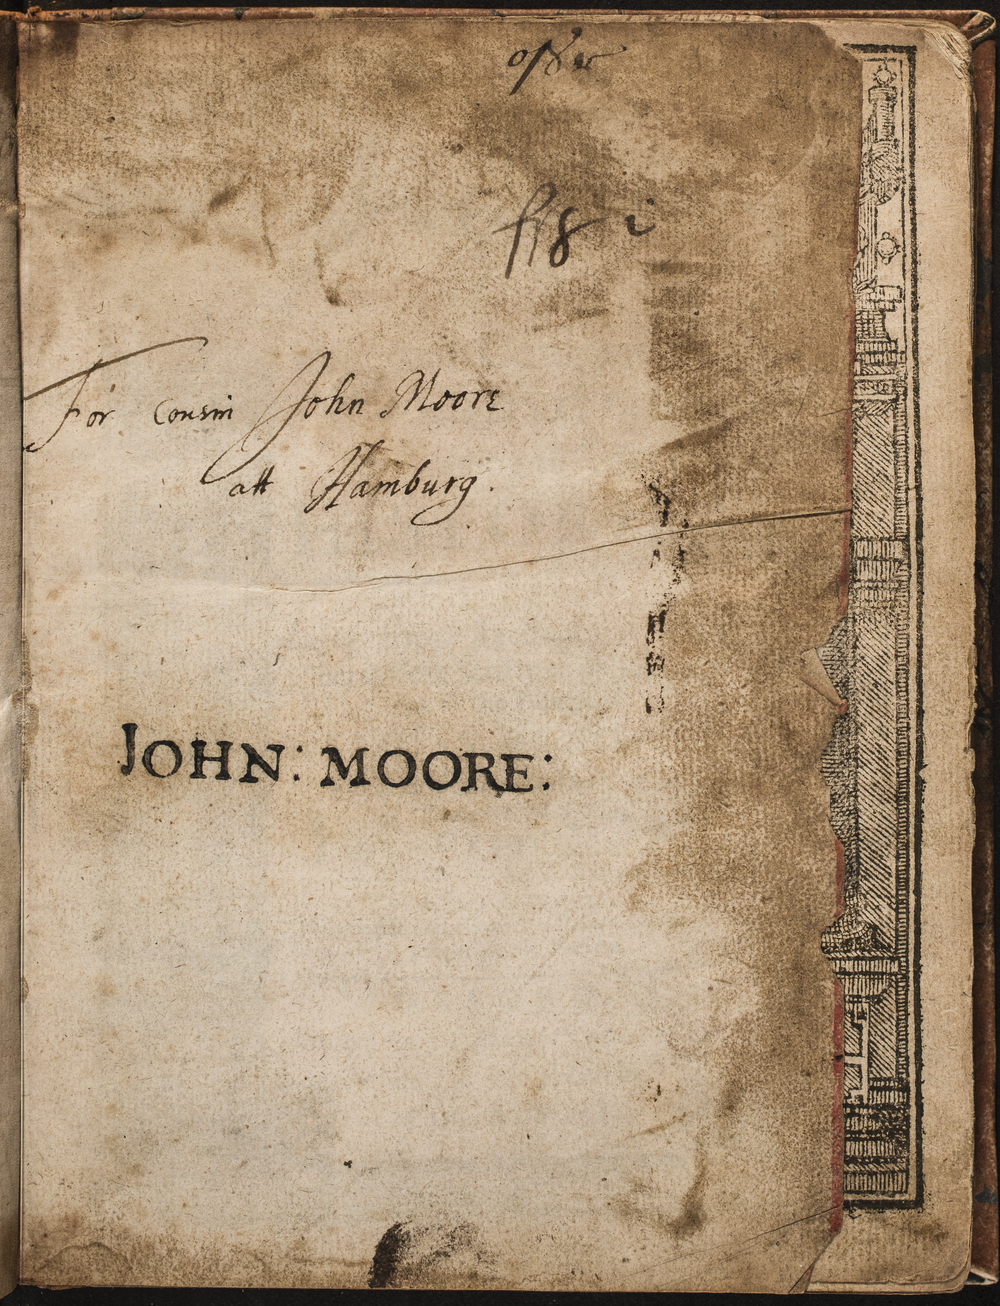 For Cousin John Moore
att Hamburg.
JOHN: MOORE: